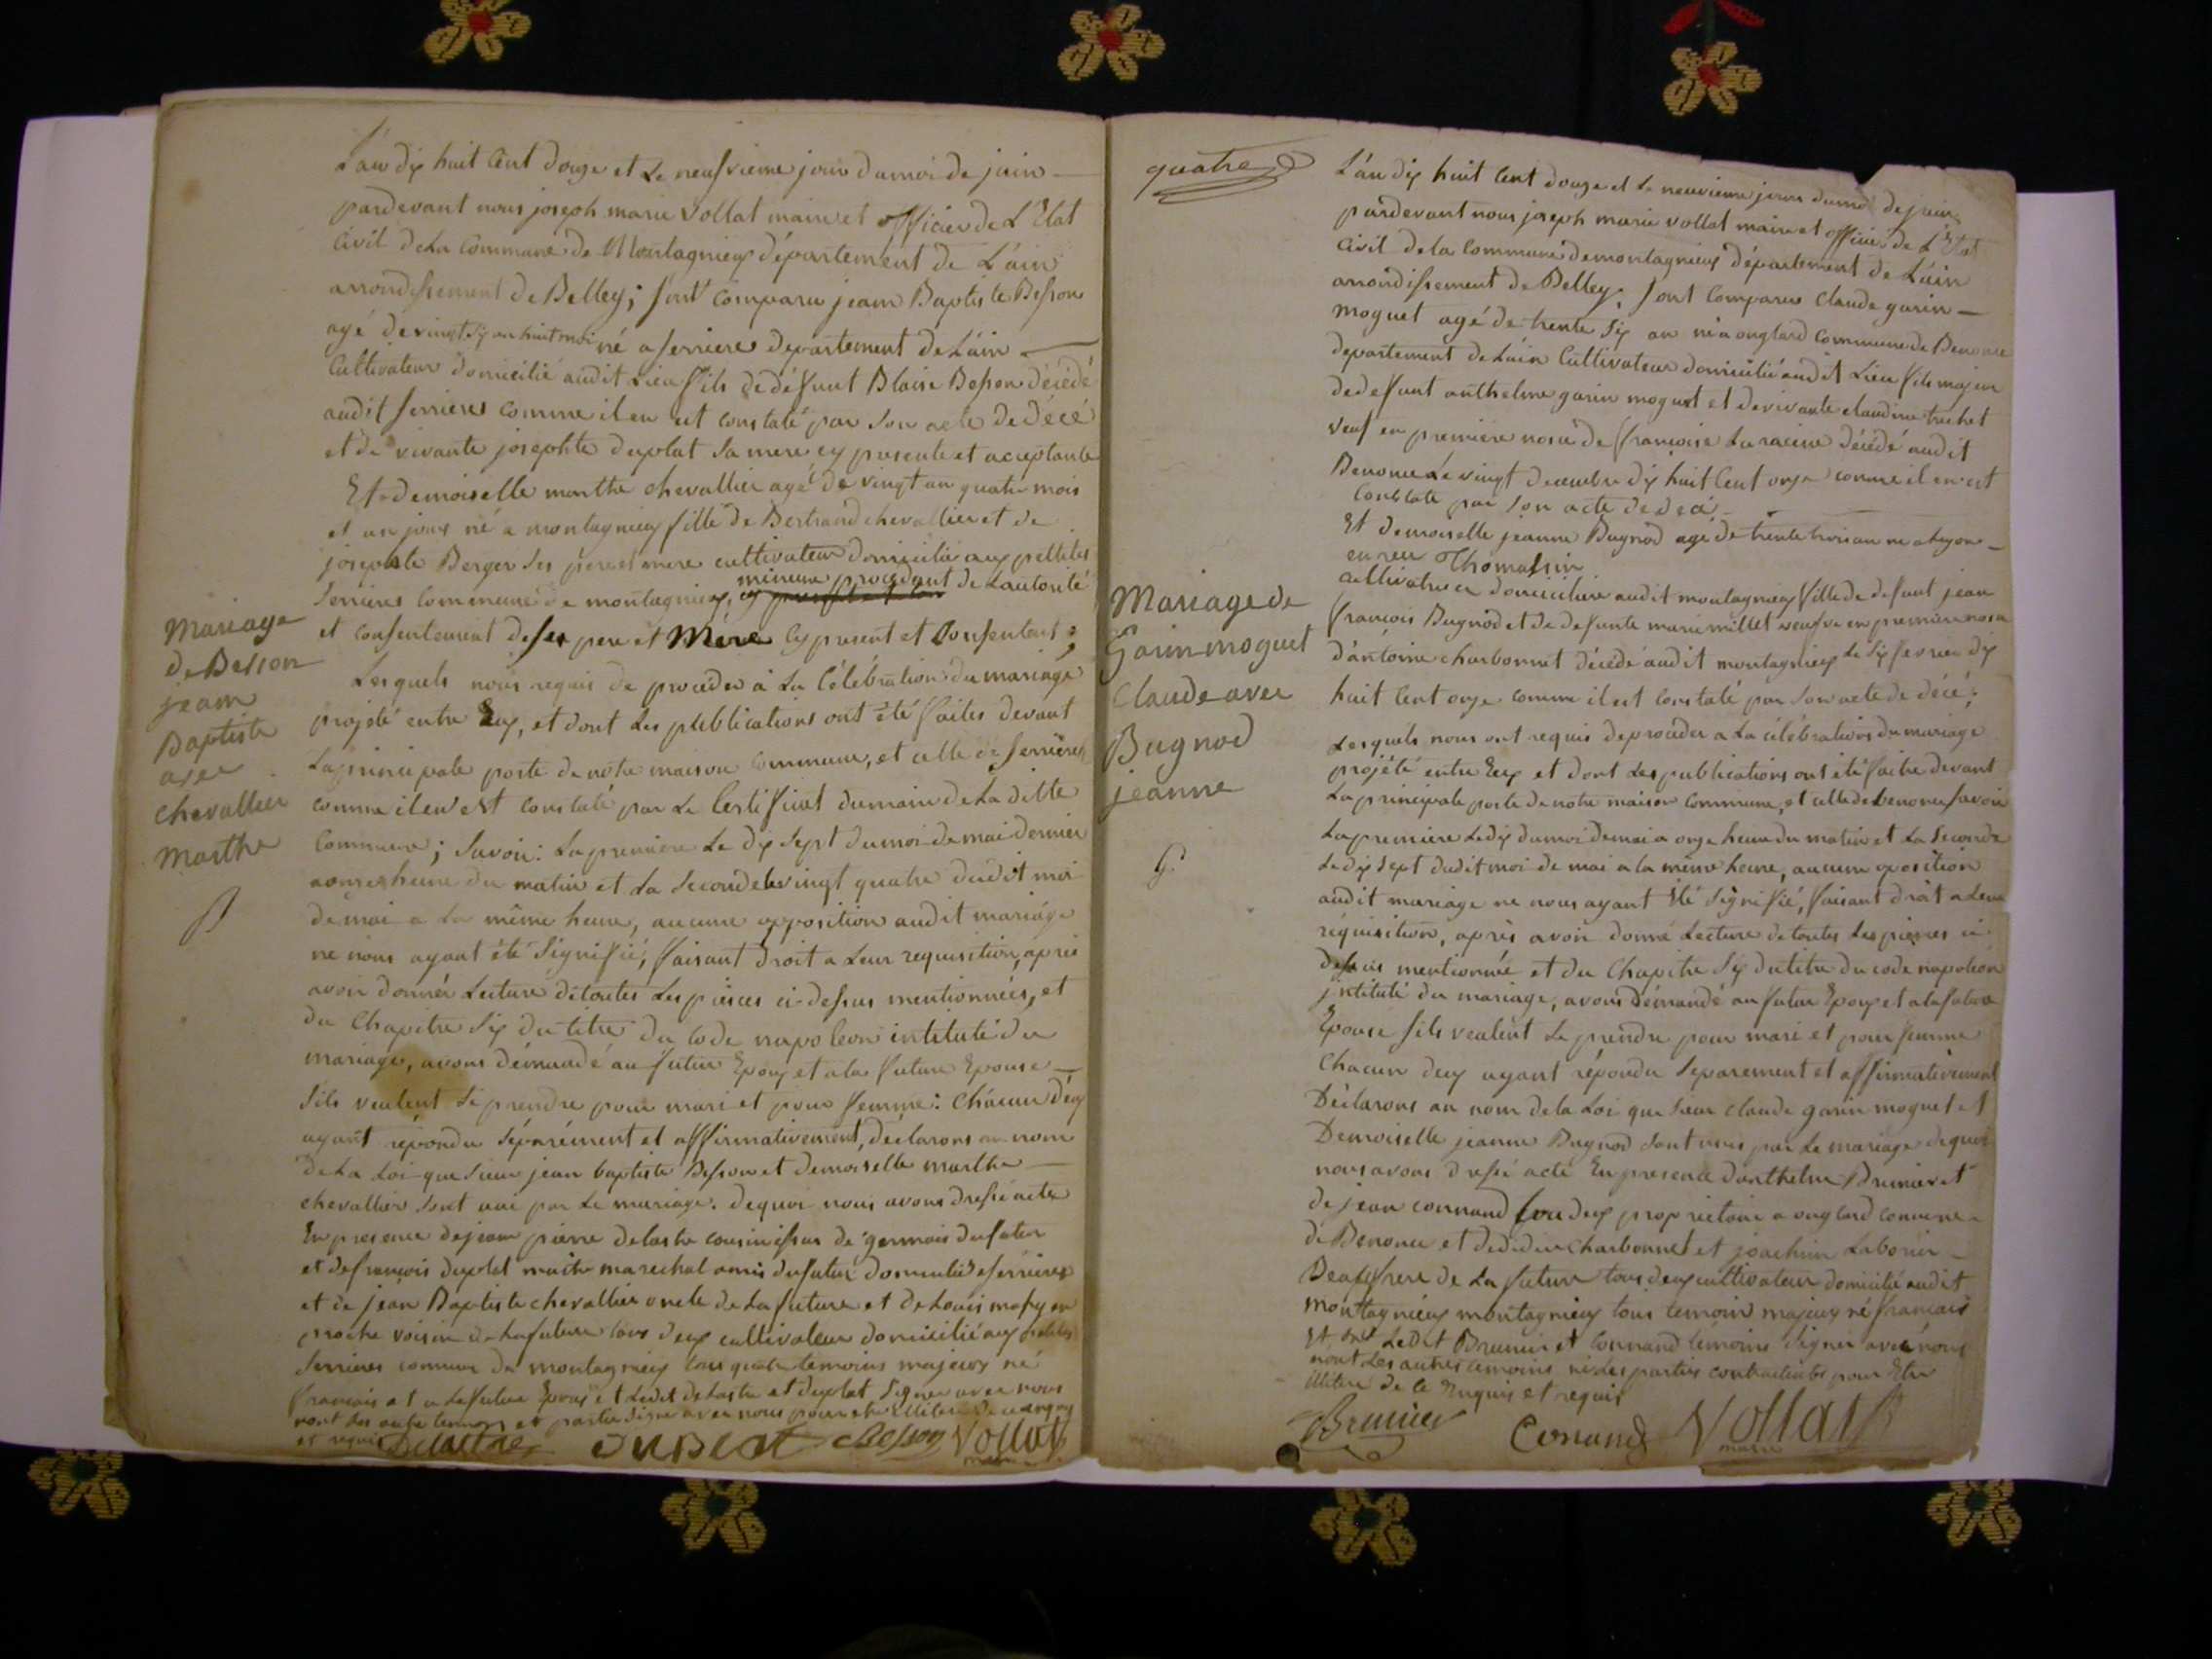 L'an dix huit cent douze et le neufvieme jour du moi de juin
pardevant nous joseph marie vollat maire et officier de L'Etat
Civil de la Commune de Montagnieux département de L'ain
arrondissement de Belley; sont comparu jean Baptiste Besson
agé de vingt six an huit moi né a serrieres departement de L'ain
Cultivateur domicilié audit Lieu fils de défunt Blaise Besson décédé
audit serrieres comme il en est constaté par son acte de décé
et de vivante josephte duplat sa mere cy presente et aceptante
Et demoiselle marthe chevallier agé de vingt an quatre mois
et un jour né a montagnieux fille de Bertrand chevallier et de
josephte Berger ses pere et mere cultivateur domicilié aux pettites
serrieres commune de montagnieux, mineure procedant de L'autorité
et consentement de ses pere et Mere cy present et consentant;
Mariage
de Besson
jean
Baptiste
avec
chevallier
marthe
Lesquels nous requis de proceder a La Célébration du mariage
projeté entre Eux, et dont Les publications ont été faites devant
La principale porte de notre maison commune, et celle de serrieres
comme il en est constaté par Le Certificat du maire de La ditte
commune; savoir: La premiere Le dix sept du moi de mai dernier
a onze heure du matin et La seconde le vingt quatre dudit moi
de mai a La même heure, aucune opposition audit mariage
ne nous ayant été signifié, faisant droit a Leur requisition, après
avoir donnér Lecture de toutes Les pieces ci-dessus mentionnées, et
du Chapitre six du titre du code napoleon intitulé du
mariage, avons démandé au futur Epoux et a la future Epouse
s'ils veulent se prendre pour mari et pour femme: chacun d'eux
ayant répondu séparément et affirmativement, déclarons au nom
de La Loi que sieur jean baptiste Besson et demoiselle marthe
chevallier sont uni par Le mariage. dequoi nous avons dressé acte
En presence de jean pierre delastre cousin issus de germain du futur
et de francois duplat maitre marechal amis du futur domicilié a serrieres
et de jean Baptiste chevallier oncle de La future et de Louis
proche voisin de La future tous deux cultivateur domicilié aux pettites
serrieres commune de montagnieux tous quatre temoins majeur né
francais et a Le futur Epoux et Ledit delastre et duplat signer avec nous
nont les autre temoins et partie signe avec nous pour etre illitere de ce enquis
et requi Delastre DUPLAT Besson Vollat
maire
quatre
L'an dix huit cent douze et Le neuvieme jour du moi de juin
pardevant nous joseph marie vollat maire et officié de L'Etat
civil de la commune de montagnieux département de L'ain
arrondissement de Belley; sont comparus Claude garin
moguet agé de trente six an né a onglard commune de Benonce
departement de L'ain Cultivateur domicilié audit Lieu fils majeur
de defunt anthelme garin moguet et de vivante claudine trochet
veuf en premiere nosse de francoise La racine décédé audit
Benonce Le vingt decembre dix huit cent onze comme il en est
constaté par son acte de décé
Et demoiselle jeanne Bugnod agé de trente trois an né
Thomassin
cultivatrice domiciliée audit montagnieux fille de defunt jean
francois Bugnod et de defunte marie millet veufve en premiere nosse
d'antoine charbonnet décédé audit montagnieux Le six fevrier dix
huit cent onze comme il est constaté par son acte de décé;
Mariage de
Garin moguet
Claude avec
Bugnod
jeanne
Lesquels nous ont requis de proceder a La célébration du mariage
projété entre Eux et dont Les publications ont été faitre devant
La principale porte de notre maison commune, et celle de benonce savoir
La premiere Le dix du moi de mai a onze heure du matin et La seconde
Le dix sept dudit moi de mai a la même heure, aucune oposition
audit mariage ne nous ayant été signifié, faisant droit a Leur
réquisition, après avoir donné Lecture de toutes Les pieces ci
dessus mentionnée et du Chapitre six du titre du code napoleon
intitulé du mariage, avons démandé au futur Epoux et a la future
Epouse s'ils veulent se prendre pour mari et pour femme
chacun deux ayant répondu separement et affirmativement
Déclarons au nom de la Loi que sieur claude garin moguet et
Demoiselle jeanne Bugnod sont unis par Le mariage dequoi
nous avons dressé acte En presence d'anthelme Brunier et
de jean connand tous deux proprietaire a onglard commune
de Benonce et de didier charbonnet et joachim Laborier
Beaufrere de La future tous deux cultivateur domicilié audit
montagnieux montagnieux tous temoin majeur né francais
Et ont Ledit Brunier et connand temoins signer avec nous
n'ont Les autres temoins ni Les parties contractantes pour Etre
illitere de ce Enquis et requis
Brunier Conand Vollat
maire